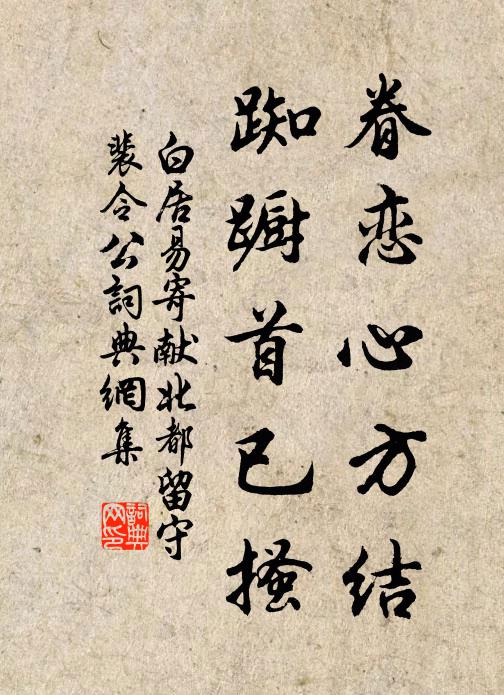 眷恋心方结
踟蹰首已搔
白居易寄献北都留守
裴令公詞典網集
詞典
网印